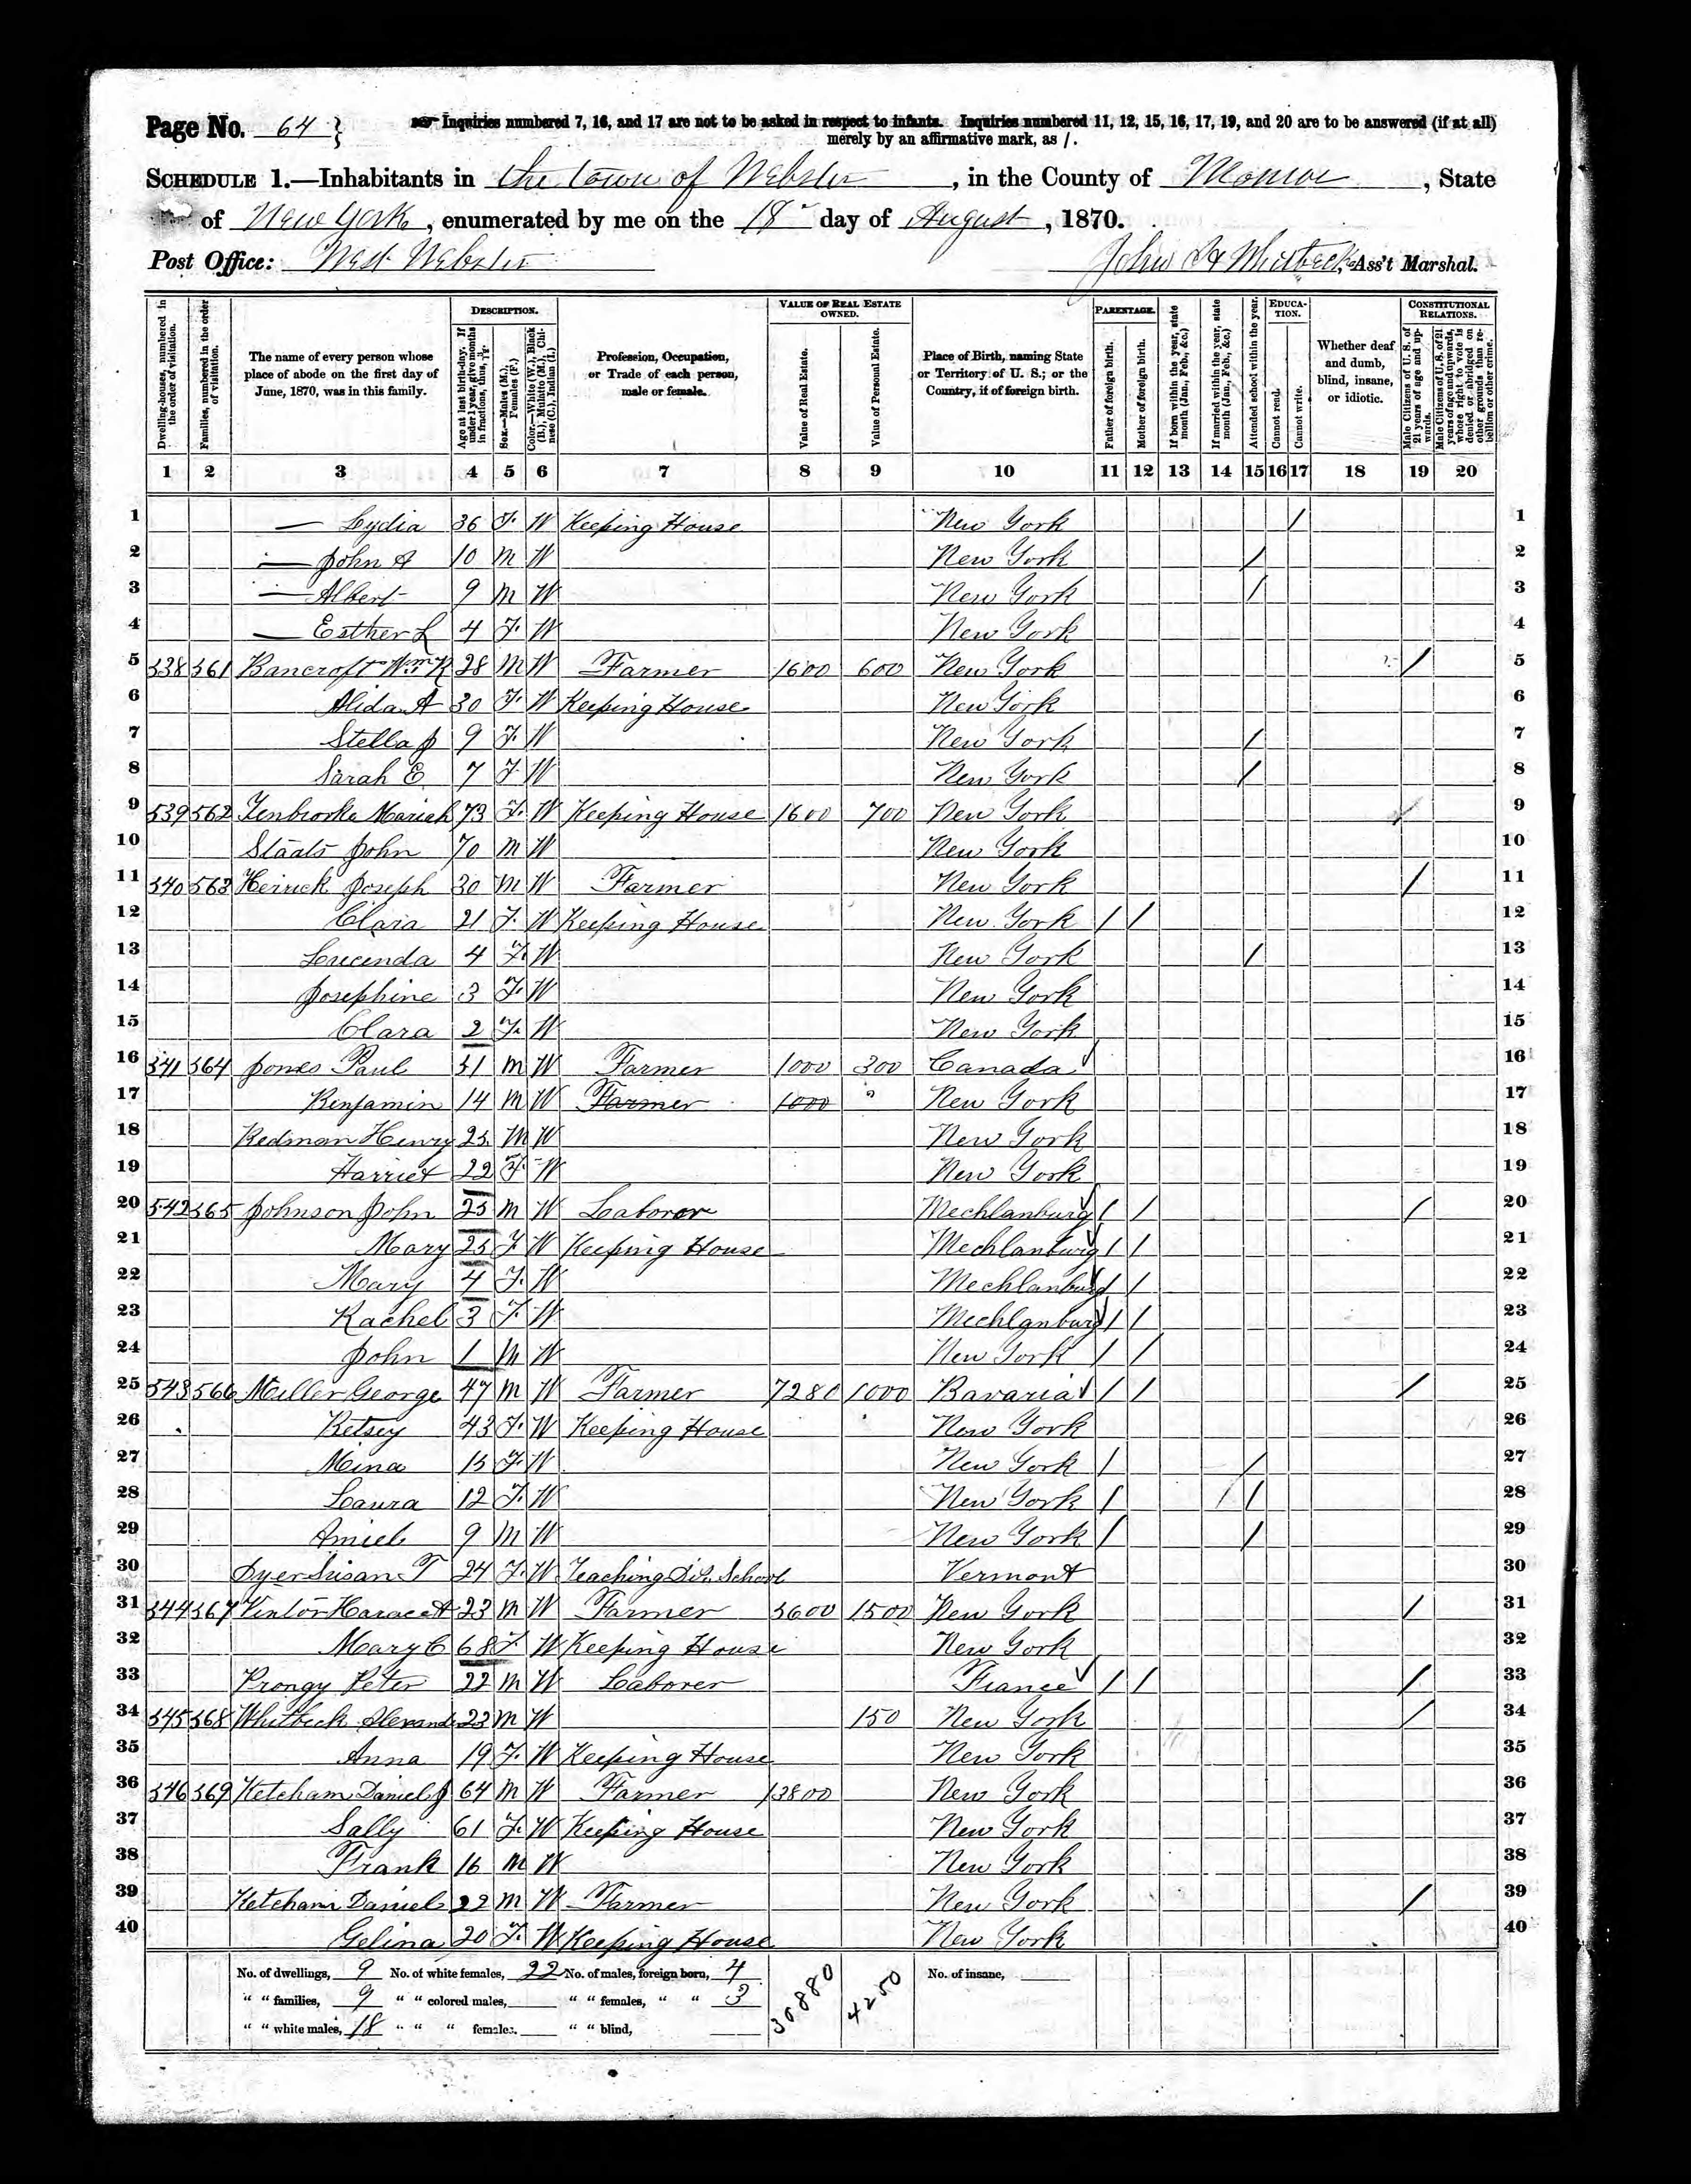 Page No. 64 }
Inquiries numbered 7, 16, and 17 are not to be asked in respect to infants. Inquiries numbered 11, 12, 15, 16, 17, 19, and 20 are to be answered (if at all)
merely by an affirmative mark, as /.
SCHEDULE 1.—Inhabitants in the town of Webster, in the County of Monroe, State
of New York, enumerated by me on the 18 day of August, 1870.
Post Office: West Webster
John A Whitbeck, Ass't Marshal.
Dwelling-houses, numbered in the order of visitation.
Families, numbered in the order of visitation.
The name of every person whose place of abode on the first day of June, 1870, was in this family.
DESCRIPTION.
Age at last birth-day. If under 1 year, give months in fractions, thus, 3/12.
Sex.—Males (M.), Females (F.)
Color.—White (W.), Black (B.), Mulatto (M.), Chinese (C.), Indian (I.)
Profession, Occupation, or Trade of each person, male or female.
VALUE OF REAL ESTATE OWNED.
Value of Real Estate.
Value of Personal Estate.
Place of Birth, naming State or Territory of U. S.; or the Country, if of foreign birth.
PARENTAGE.
Father of foreign birth.
Mother of foreign birth.
If born within the year, state month (Jan., Feb., &c.)
If married within the year, state month (Jan., Feb., &c.)
Attended school within the year.
EDUCATION.
Cannot read.
Cannot write.
Whether deaf and dumb, blind, insane, or idiotic.
CONSTITUTIONAL RELATIONS.
Male Citizens of U. S. of 21 years of age and upwards.
Male Citizens of U. S. of 21 years of age and upwards, where right to vote is denied or abridged on other grounds than rebellion or other crime.
1 2 3 4 5 6 7 8 9 10 11 12 13 14 15 16 17 18 19 20
1 — Lydia 36 F. W Keeping House New York / 1
2 — John A 10 M W New York / 2
3 — Albert 9 M W New York / 3
4 — Esther L 4 F. W New York 4
5 538 561 Bancroft Wm K 28 M W Farmer 1600 600 New York / 5
6 Alida A 30 F. W Keeping House New York 6
7 Stella J 9 F. W New York / 7
8 Sarah E 7 F. W New York / 8
9 539 562 Tenbrooke Mariah 73 F. W Keeping House 1600 700 New York / 9
10 Staats John 70 M W New York 10
11 540 563 Herrick Joseph 30 M W Farmer New York / 11
12 Clara 21 F. W Keeping House New York / / 12
13 Lucenda 4 F. W New York / 13
14 Josephine 3 F. W New York 14
15 Clara 2 F. W New York 15
16 541 564 Jones Paul 51 M W Farmer 1000 300 Canada 16
17 Benjamin 14 M W Farmer 1000 New York 17
18 Redman Henry 25 M W New York 18
19 Harriet 22 F. W New York 19
20 542 565 Johnson John 25 M W Laborer Mechlanburg / / / 20
21 Mary 25 F. W Keeping House Mechlanburg / / 21
22 Mary 4 F. W Mechlanburg / / 22
23 Rachel 3 F. W Mechlanburg / / 23
24 John 1 M W New York / / 24
25 543 566 Miller George 47 M W Farmer 7280 1000 Bavaria / / / 25
26 Betsey 43 F. W Keeping House New York 26
27 Mina 15 F. W New York / / 27
28 Laura 12 F. W New York / / 28
29 Amiel 9 M W New York / / 29
30 Dyer Susan T 24 F. W Teaching Dis. School Vermont 30
31 544 567 Vinton Horace A 23 M W Farmer 5600 1500 New York / 31
32 Mary C 68 F. W Keeping House New York 32
33 Prongy Peter 22 M W Laborer France / / / 33
34 545 568 Whitbeck 23 M W 150 New York / 34
35 Anna 19 F. W Keeping House New York 35
36 546 569 Ketcham Daniel J 64 M W Farmer 13800 New York 36
37 Sally 61 F. W Keeping House New York 37
38 Frank 16 M W New York 38
39 Ketcham Daniel 22 M W Farmer New York / 39
40 Gelina 20 F. W Keeping House New York 40
No. of dwellings, 9 No. of white females, 22 No. of males, foreign born, 4 30880 4250 No. of insane,
" " families, 9 " " colored males, " " females, " " 3
" " white males, 18 " " " females. " " blind,